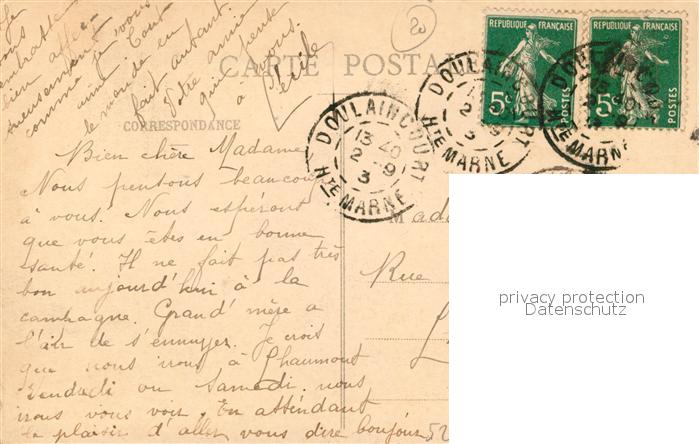 CARTE POSTALE
CORRESPONDANCE
RÉPUBLIQUE FRANÇAISE
5c
POSTES
RÉPUBLIQUE FRANÇAISE
5c
POSTES
DOULAINCOURT
13 40
2 - 9
3
HTE MARNE
DOULAINCOURT
2 9
3
HTE MARNE
HTE MARNE
Bien chère Madame
Nous pensons beaucoup
à vous. Nous espérons
que vous êtes en bonne
santé. Il ne fait pas très
bon aujourd'hui à la
campagne. Grand' mère a
l'air de s'ennuyer. Je crois
que nous irons à Chaumont
Vendredi ou Samedi, nous
irons vous voir. En attendant
le plaisir d'aller vous dire bonjour
je vous
embrasse
bien affec-
tueusement
comme je vous
aime. Tout
le monde en
fait autant.
Votre amie
qui pense
à vous.
Cécile
Mada
Rue
52
privacy protection
Datenschutz